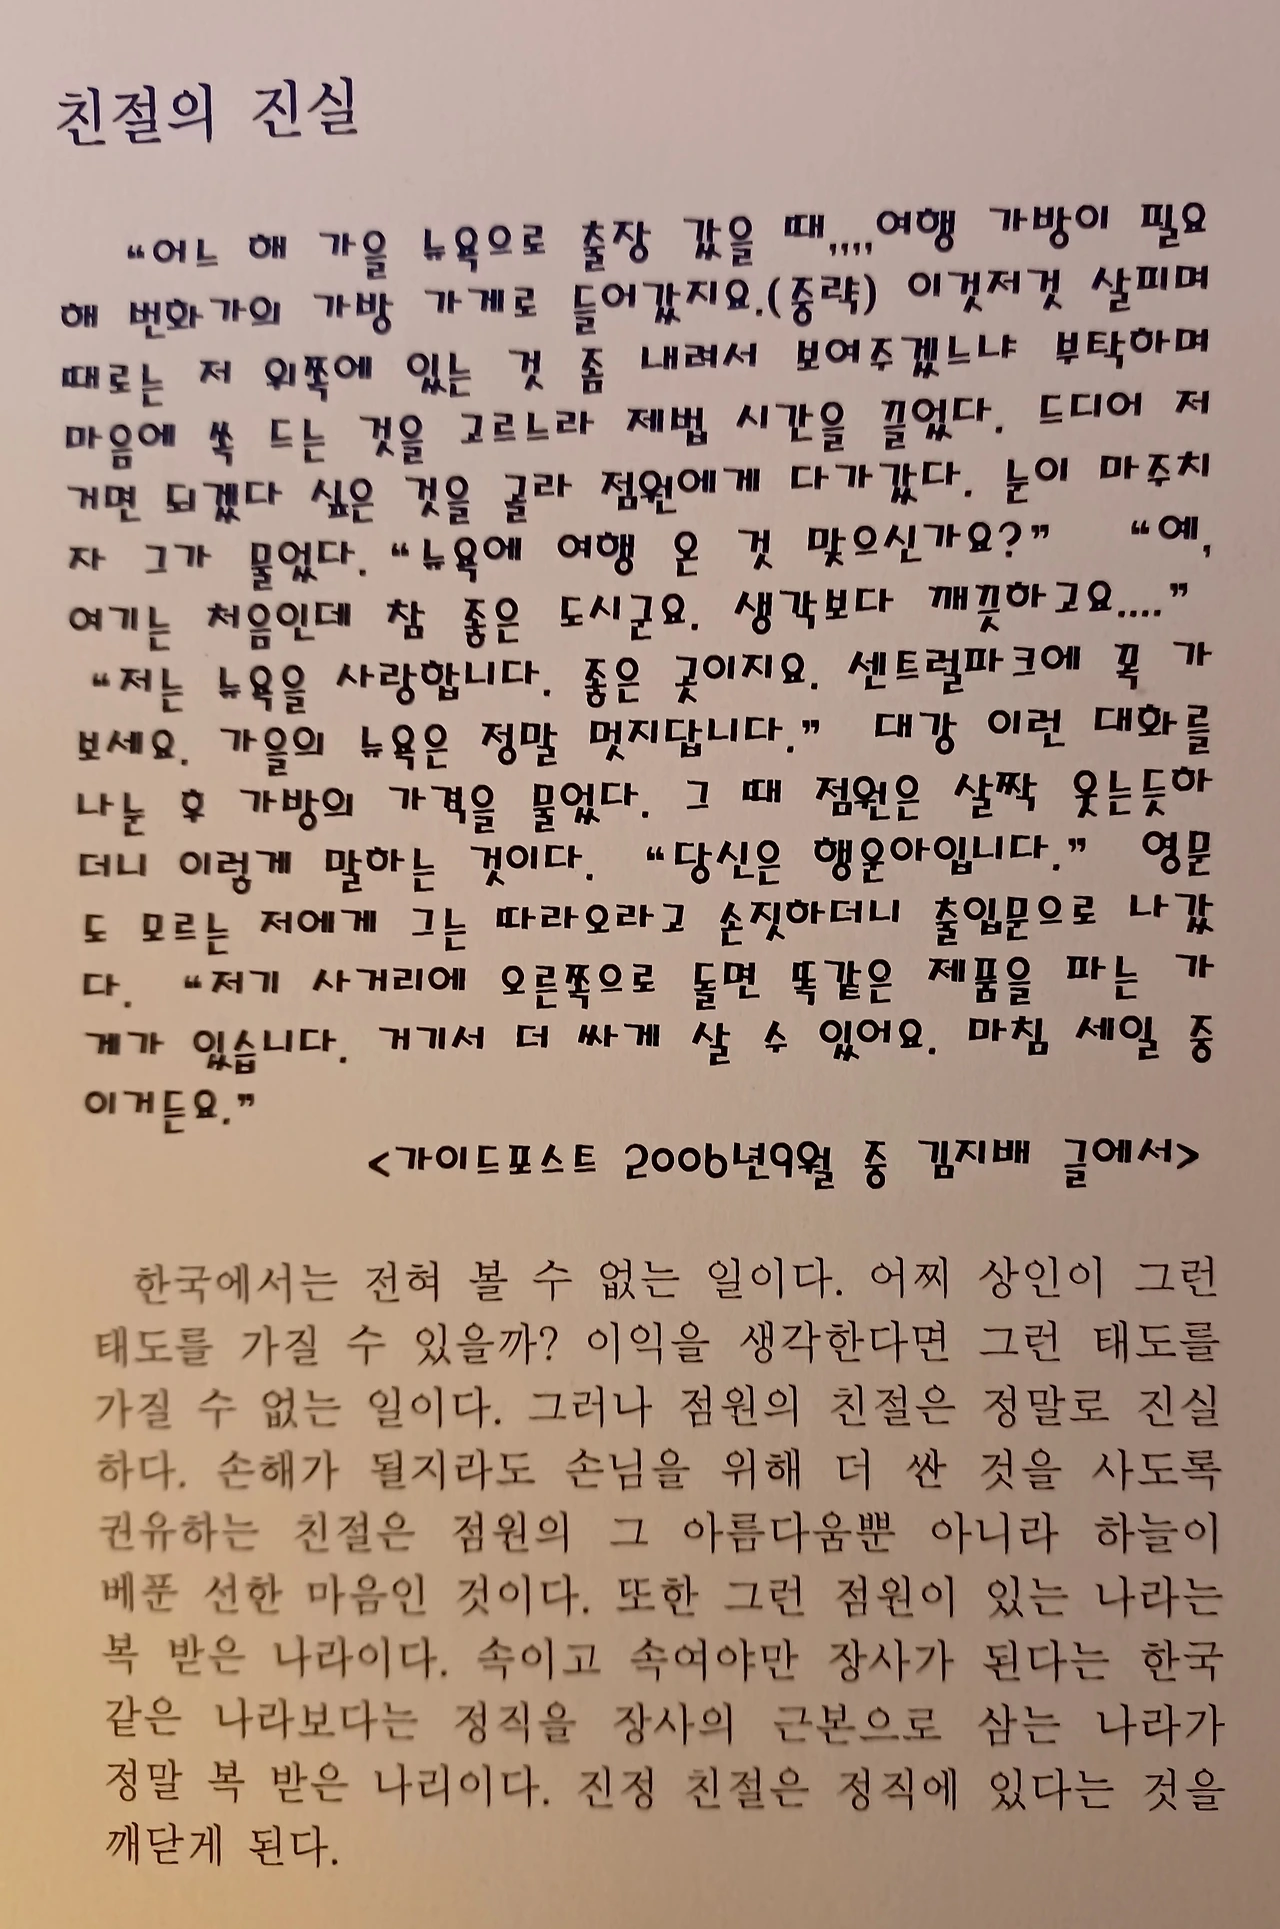 친절의 진실
“어느 해 가을 뉴욕으로 출장 갔을 때,,,,여행 가방이 필요
해 번화가의 가방 가게로 들어갔지요.(중략) 이것저것 살피며
때로는 저 왼쪽에 있는 것 좀 내려서 보여주겠느냐 부탁하며
마음에 쏙 드는 것을 고르느라 제법 시간을 끌었다. 드디어 저
거면 되겠다 싶은 것을 골라 점원에게 다가갔다. 눈이 마주치
자 그가 물었다. “뉴욕에 여행 온 것 맞으신가요?” “예,
여기는 처음인데 참 좋은 도시군요. 생각보다 깨끗하고요....”
“저는 뉴욕을 사랑합니다. 좋은 곳이지요. 센트럴파크에 꼭 가
보세요. 가을의 뉴욕은 정말 멋지답니다.” 대강 이런 대화를
나눈 후 가방의 가격을 물었다. 그 때 점원은 살짝 웃는듯하
더니 이렇게 말하는 것이다. “당신은 행운아입니다.” 영문
도 모르는 저에게 그는 따라오라고 손짓하더니 출입문으로 나갔
다. “저기 사거리에 오른쪽으로 돌면 똑같은 제품을 파는 가
게가 있습니다. 거기서 더 싸게 살 수 있어요. 마침 세일 중
이거든요.”
<가이드포스트 2006년9월 중 김지배 글에서>
한국에서는 전혀 볼 수 없는 일이다. 어찌 상인이 그런
태도를 가질 수 있을까? 이익을 생각한다면 그런 태도를
가질 수 없는 일이다. 그러나 점원의 친절은 정말로 진실
하다. 손해가 될지라도 손님을 위해 더 싼 것을 사도록
권유하는 친절은 점원의 그 아름다움뿐 아니라 하늘이
베푼 선한 마음인 것이다. 또한 그런 점원이 있는 나라는
복 받은 나라이다. 속이고 속여야만 장사가 된다는 한국
같은 나라보다는 정직을 장사의 근본으로 삼는 나라가
정말 복 받은 나리이다. 진정 친절은 정직에 있다는 것을
깨닫게 된다.